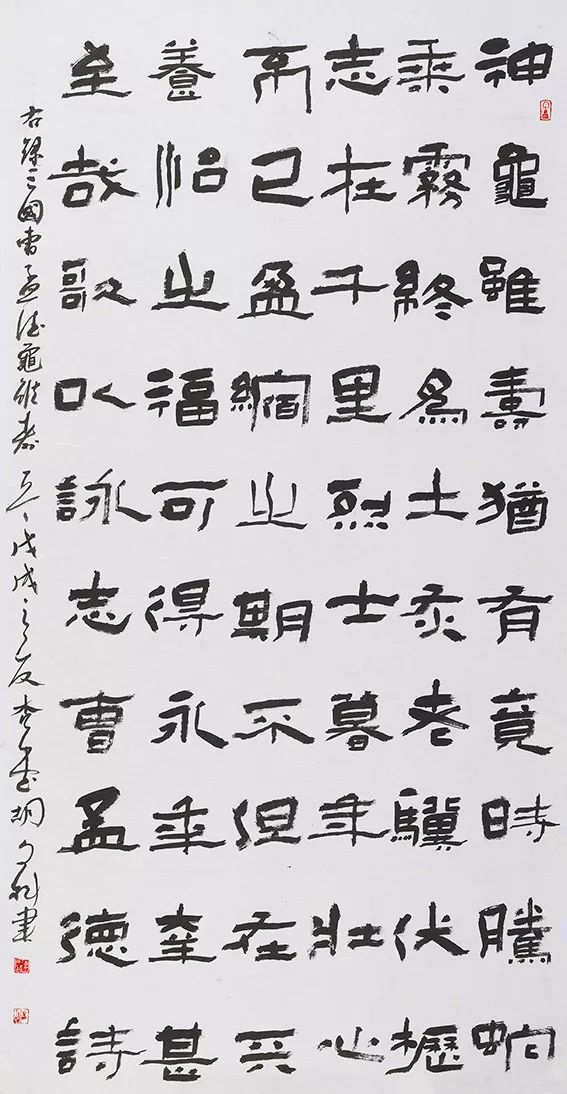 神龜雖壽猶有竟時騰蛇
乘霧終爲土灰老驥伏櫪
志在千里烈士暮年壯心
不已盈縮之期不但在天
養怡之福可得永年幸甚
至哉歌以詠志曹孟德詩
右錄三國曹孟德龜雖壽 戊戌之夏 書